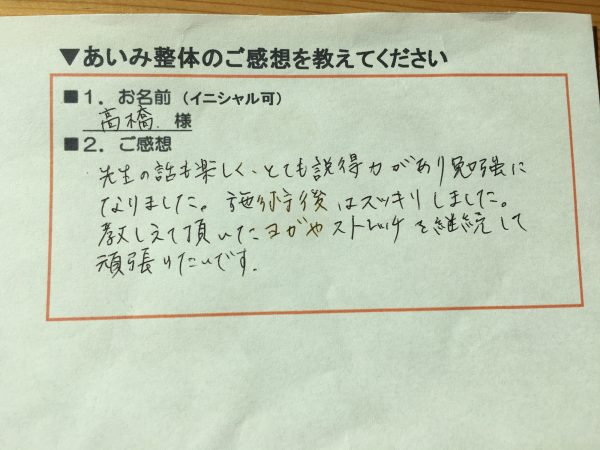 ▼あいみ整体のご感想を教えてください
■1．お名前（イニシャル可）
高橋 様
■2．ご感想
先生の話も楽しく、とても説得力があり勉強に
なりました。施術後はスッキリしました。
教しえて頂いたヨガやストレッチを継続して
頑張りたいです.